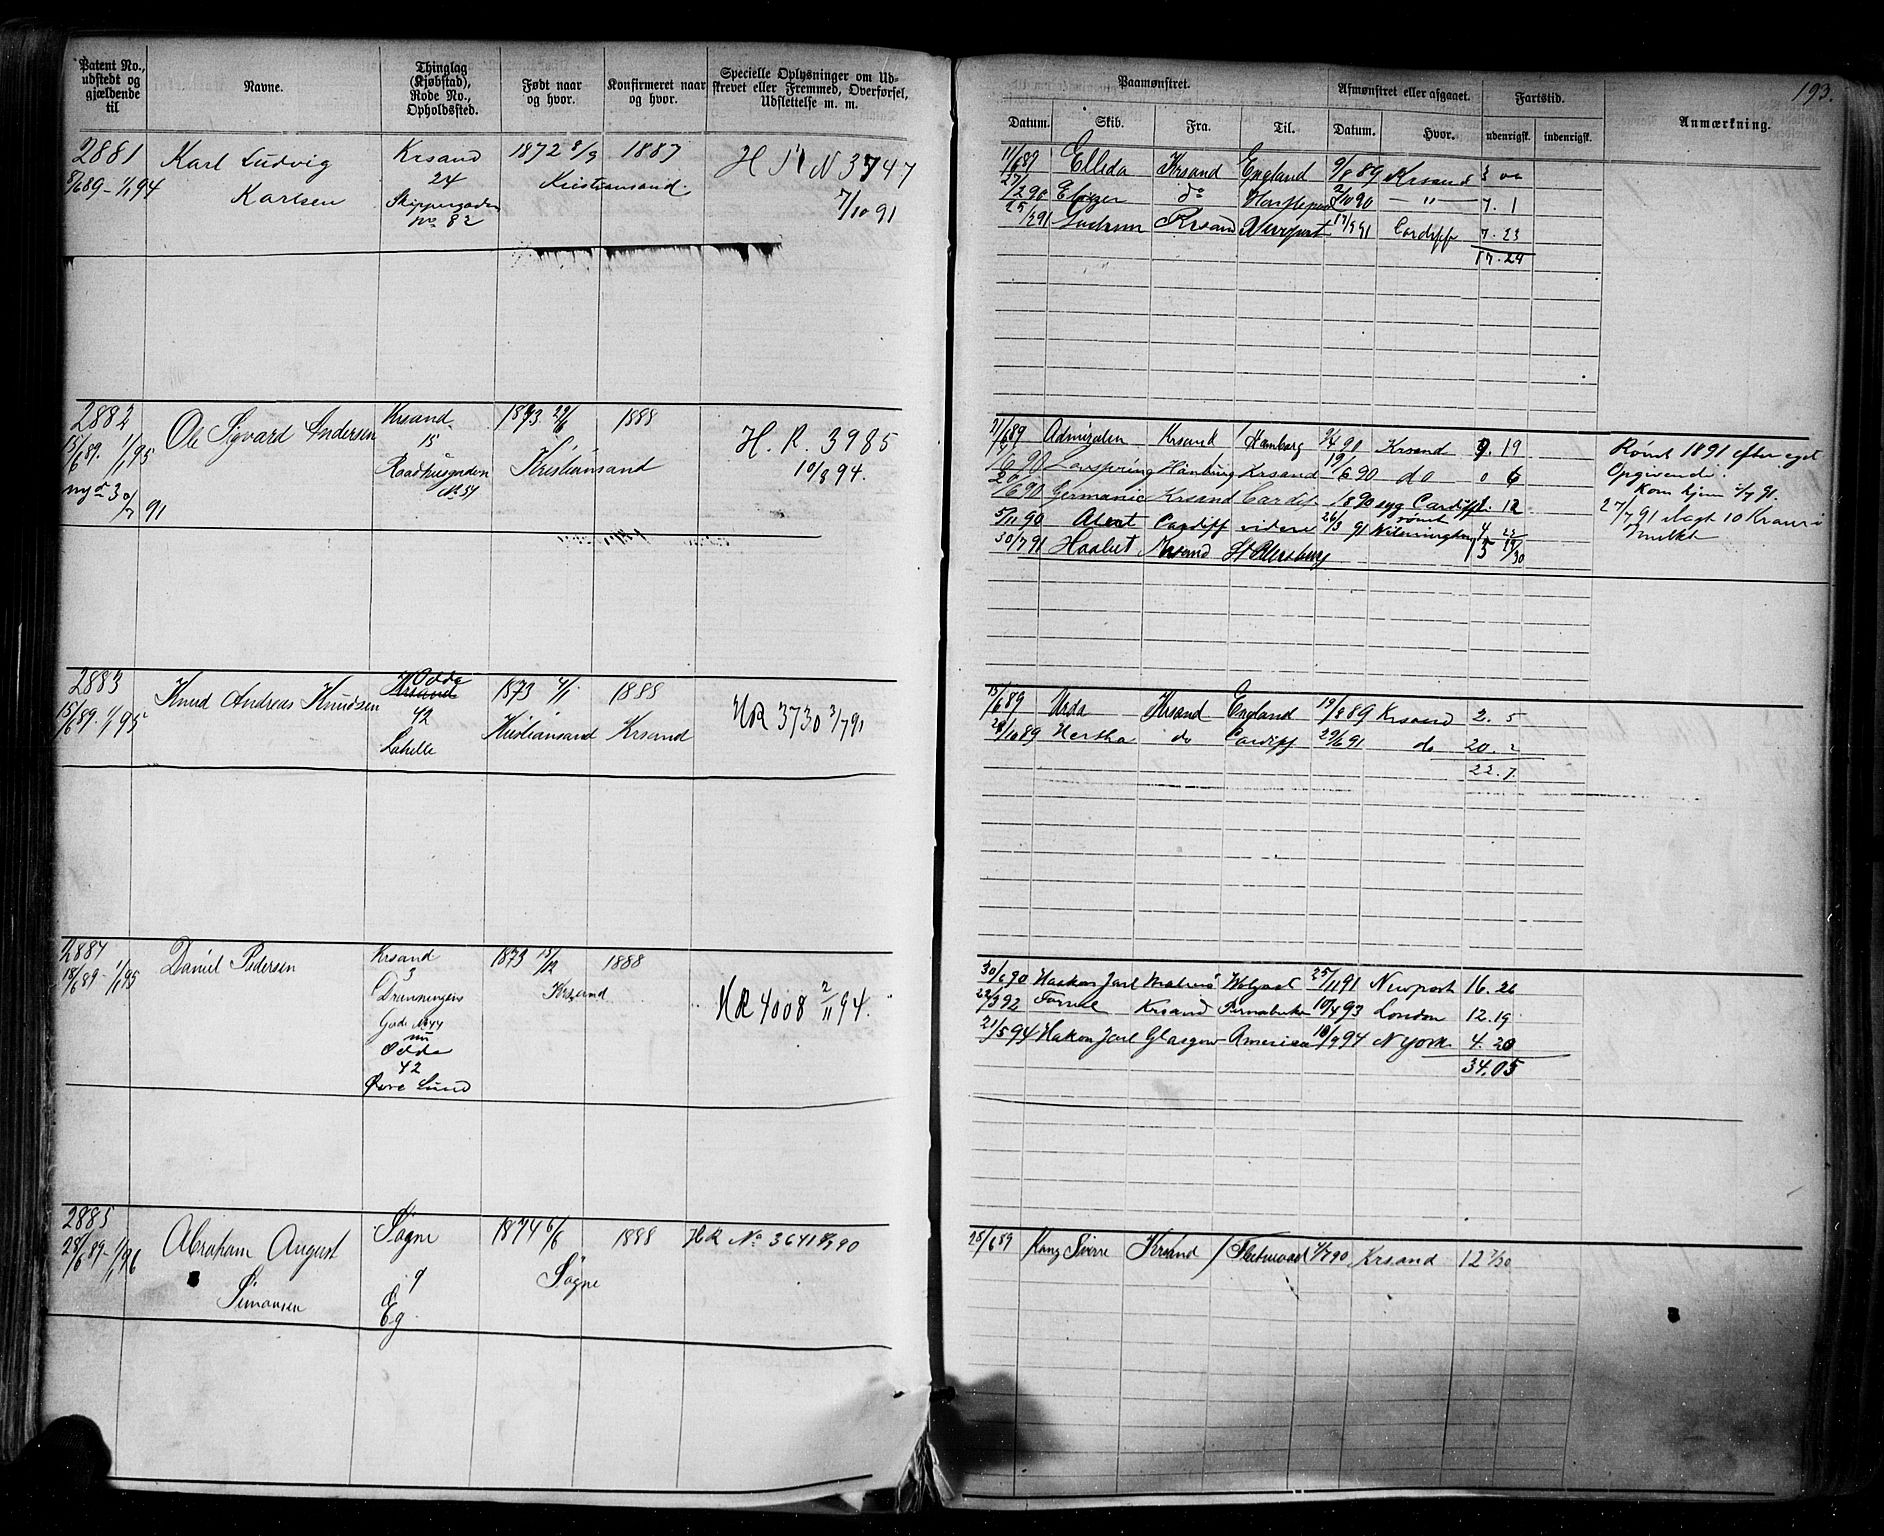 193.
Patent No., udstedt og gjældende til
Navne.
Thinglag (Kjøbstad), Rode No., Opholdssted.
Født naar og hvor.
Konfirmeret naar og hvor.
Specielle Oplysninger om Udskrevet eller Fremmed, Overførsel, Udslettelse m. m.
Paamønstret.
Afmønstret eller afgaaet.
Fartstid.
Anmærkning.
Datum. Skib. Fra. Til. Datum. Hvor. udenrigsk. indenrigsk.
2881 Karl Ludvig Krsand 1872 8/9 1887 H R N 3747
8/6 89 - 1/1 94 Karlsen 24 Kristiansand. 7/10 91
Skippergaden
No 82
11/6 89 Elleda Krsand England 9/8 89 Krsand 3
27/2 90 do 2/10 90 — " — 7. 1
Krsand Newport 17/9 91 Cardiff 7. 23
17. 24
2882 Ole Sigvard Andersen Krsand 1873 29/6 1888 H. R. 3985
15/6 89. 1/1 95 15 Kristiansand 10/8 94.
Raadhusgaden
No 54
91
21/6 89 Admiralen Krsand Hamburg 90 Krsand 9. 19
6 90 Hamburg Krsand 19/6 90 do 0 6
20/6 90 Germanic Krsand Cardif 8 90 syg Cardiff 1. 12
5/11 90 Cardiff videre 26/3 91 rømt 4
30/7 91 Haabet Krsand St Petersburg
Rømt 1891 efter eget
Opgivende.
Kom hjem 7 91.
27/7 91 ilagt 10 Kroner i
mulkt
2883 Knud Andreas Knudsen Odde Krsand 1873 4/1 1888 HR 3730 3/7 91
15/6 89 - 1/1 95 42 Kristiansand Krsand
Lahelle
15/6 89 Urda Krsand England 19/8 89 Krsand 2. 5
28/10 89 Hertha do Cardiff 29/6 91 do 20. 2
22. 7
2884 Daniel Pedersen Krsand 1873 15/12 1888
18/6 89 - 1/1 95 3 Krsand HR 4008 2/11 94.
Dronningens
Gade No 44
nu
Odde
42
Øvre Lund
30/6 90 Haakon Jarl Wolgast 25/11 91 Newport 16. 26
22/3 92 Krsand 10/4 93 London 12. 19
21/5 94 Hakon Jarl Glasgow America 10/9 94 N York 4. 20
34. 05
2885 Abraham August Søgne 1874 6/6 1888 HR No 3641 90
28/6 89 - 1/1 96 Simonsen 9 Søgne
Eg
28/6 89 Kong Sverre Krsand 90 Krsand 12 7/30